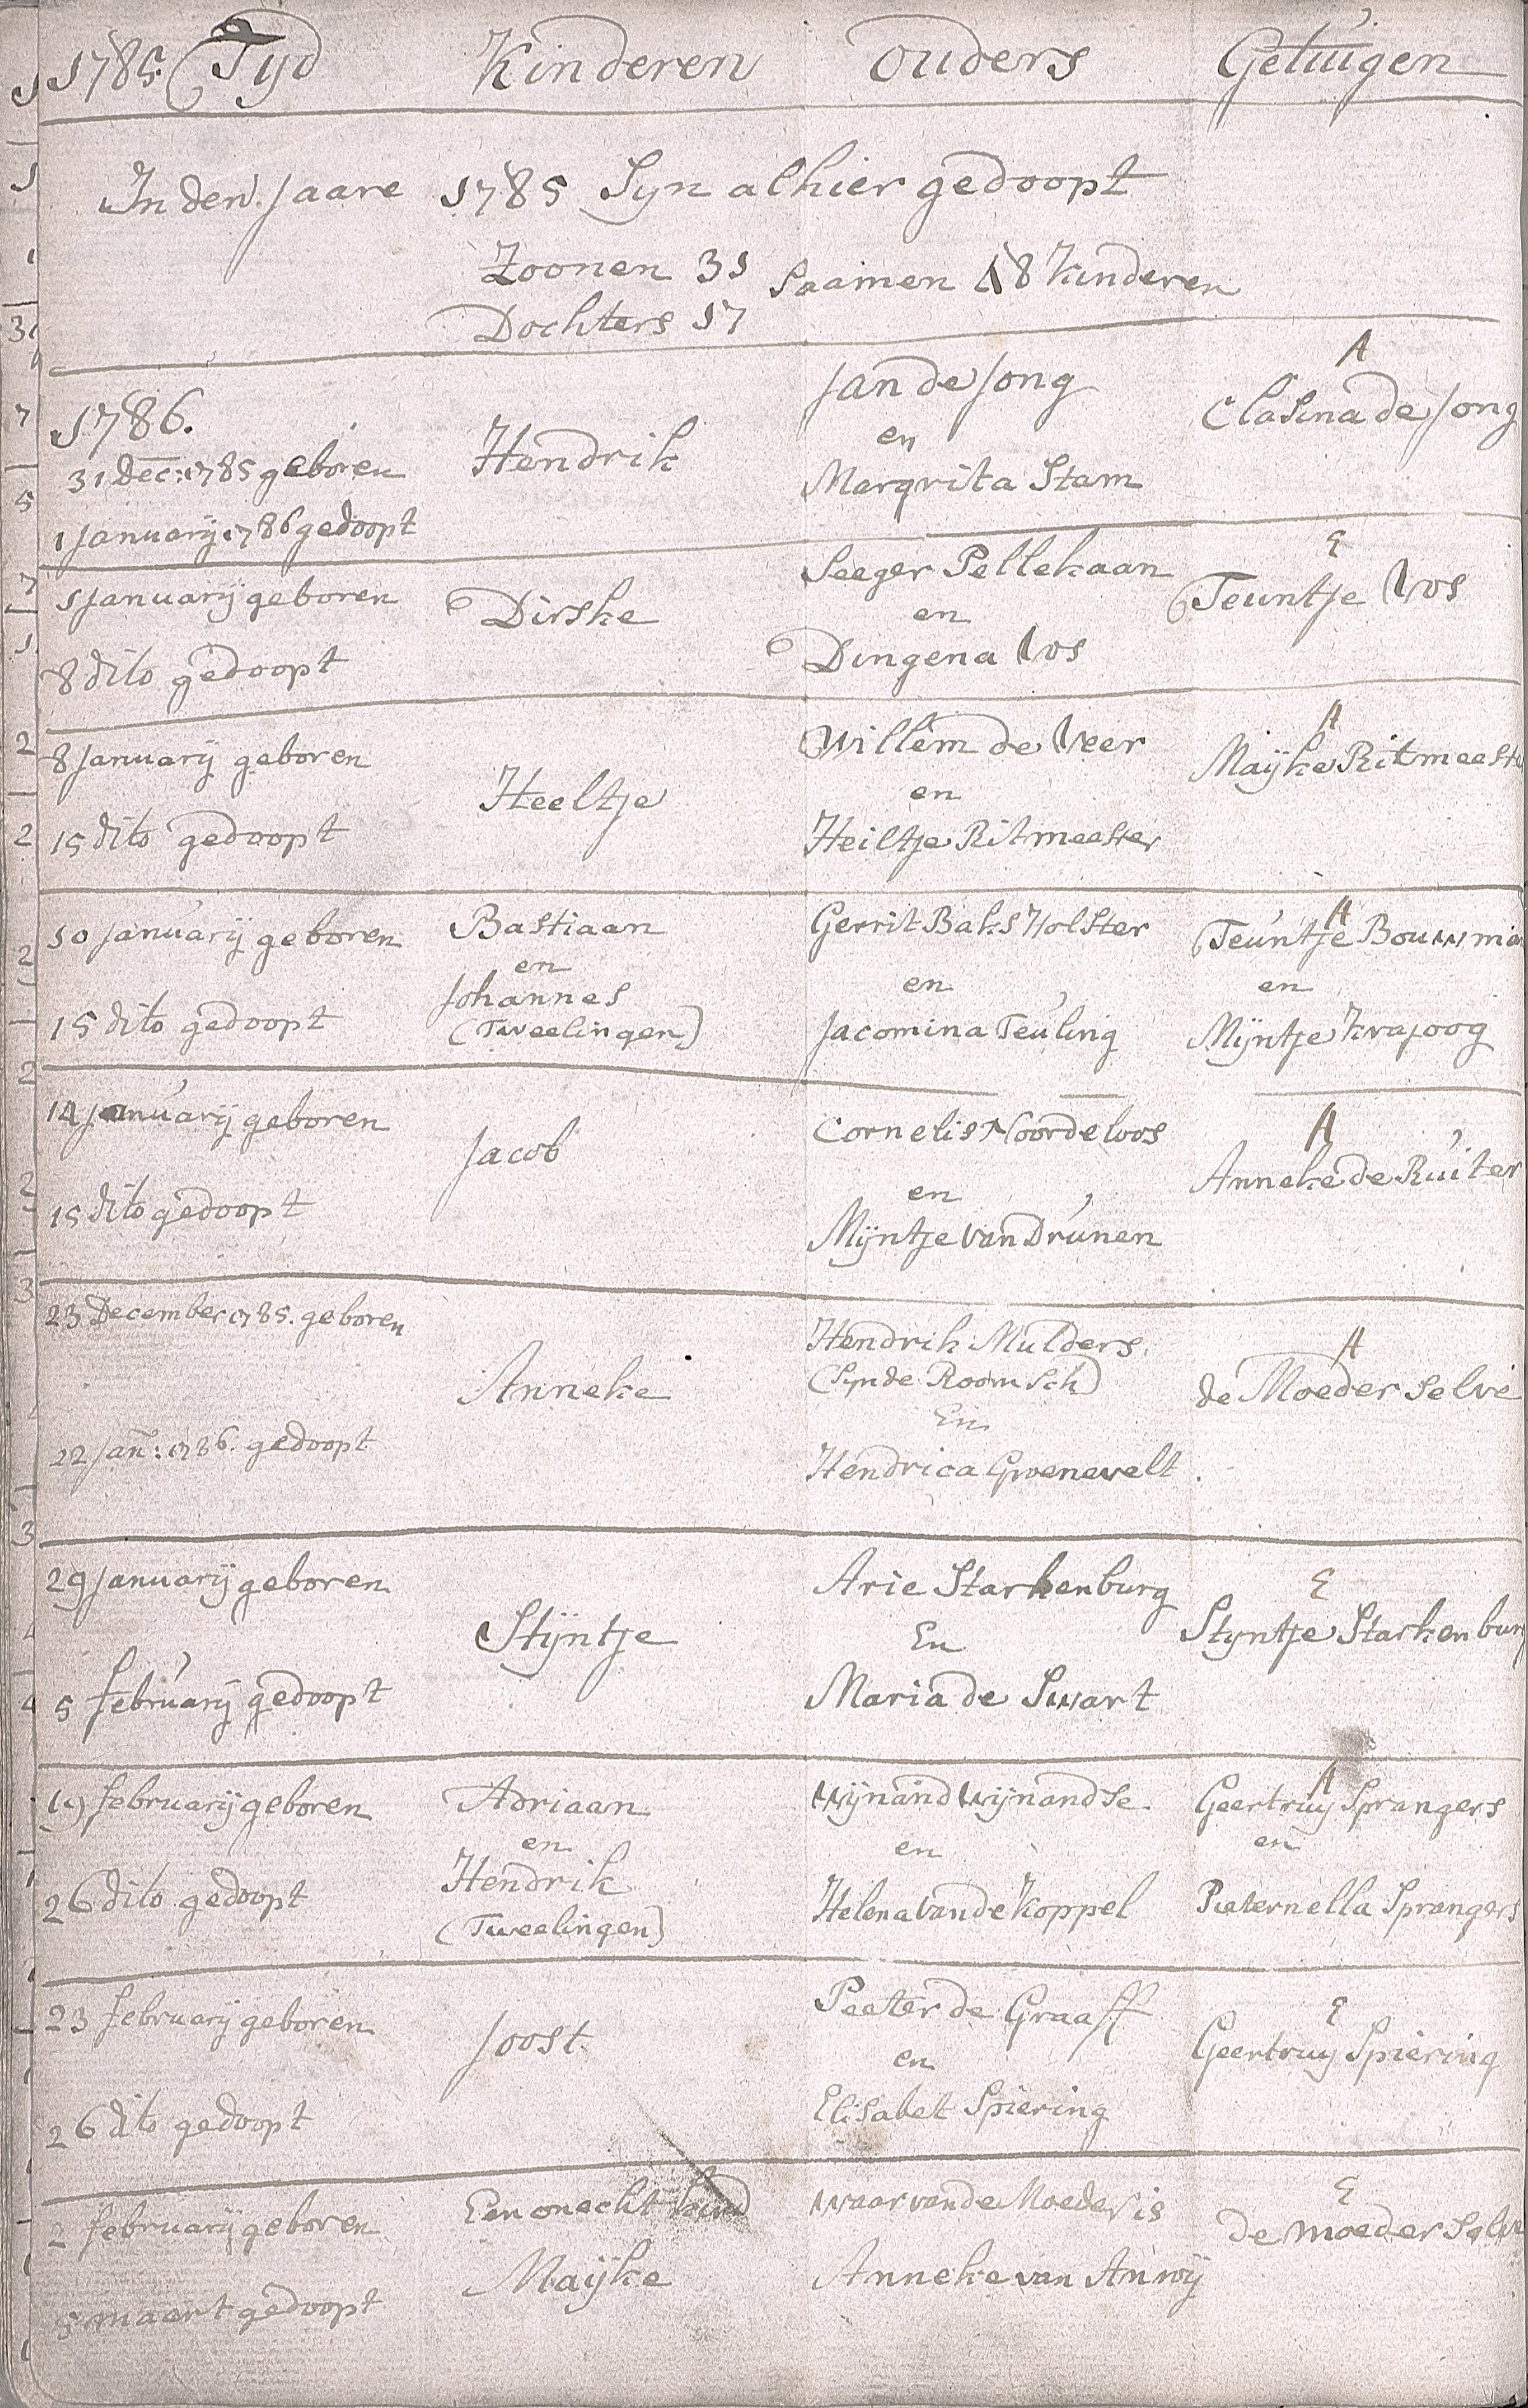 1785 Tyd Kinderen ouders Getuigen
In den Jaare 1785 Syn alhier gedoopt
Zoonen 31
Dochters 17
Saamen 48 Kinderen
1786.
31 Dec: 1785 geboren
1 January 1786 gedoopt
Hendrik
Jan de Jong
en
Margrita Stam
A
Clasina de Jong
5 January geboren
8 dito gedoopt
Dirske
Seeger Pellekaan
en
Dingena Vos
E
Teuntje Vos
8 January geboren
15 dito gedoopt
Heeltje
Willem de Veer
en
Heiltje Ritmeester
A
Mayke Ritmeester
10 January geboren
15 dito gedoopt
Bastiaan
en
Johannes
(Tweelingen)
Gerrit Baks Holster
en
Jacomina Teuling
A
Teuntje Bouwma
en
Myntje
14 January geboren
15 dito gedoopt
Jacob
Cornelis Noordeloos
en
Myntje van Drunen
A
Anneke de Ruiter
23 December 1785. geboren
22 Jan: 1786. gedoopt
Anneke
Hendrik Mulders
(Synde Roomsch)
En
Hendrica Groenevelt
A
de Moeder selve
29 January geboren
5 february gedoopt
Styntje
Arie Starkenburg
En
Maria de Swart
E
Styntje Starkenburg
19 february geboren
26 dito gedoopt
Adriaan
en
Hendrik
(Tweelingen)
Wynand Wynandse
en
Helena van de Koppel
A
Geertruy Sprangers
en
Pieternella Sprangers
23 february geboren
26 dito gedoopt
Joost
Peeter de Graaff
en
Elisabet Spiering
E
Geertruy Spiering
2 february geboren
5 maert gedoopt
Een onecht kind
Mayke
waar van de Moeder is
Anneke van Anroy
E
de moeder selve